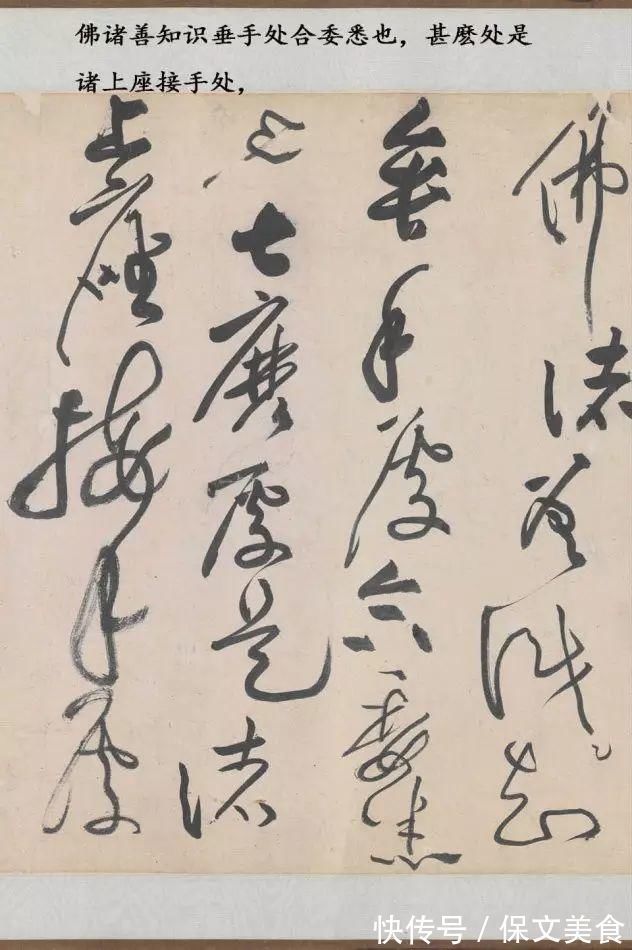 佛诸善知识垂手处合委悉也，甚麽处是
诸上座接手处，
佛諸善識知
垂手處合委悉
也甚麽處是諸
上座接手處
快传号／保文美食